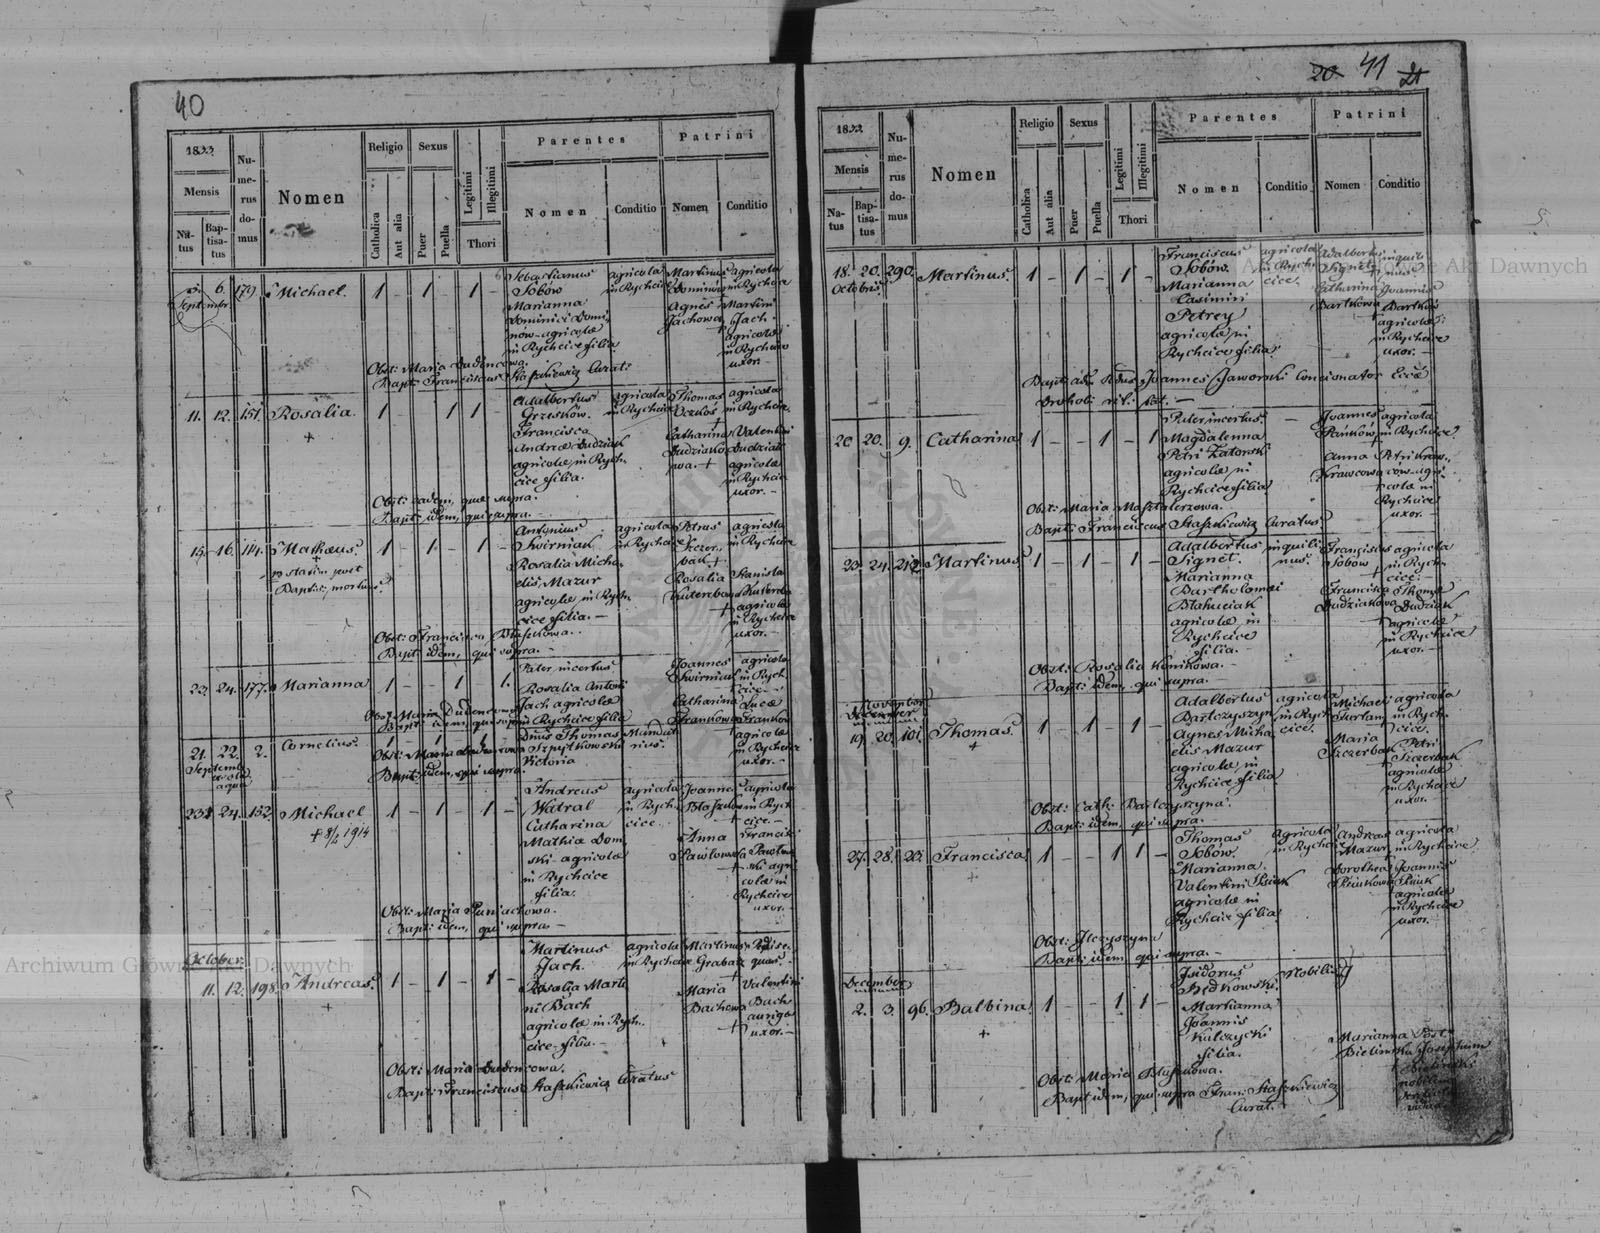 40
1833
Mensis
Natus
Baptisatus
Numerus domus
Nomen
Religio
Catholica
Aut alia
Sexus
Puer
Puella
Legitimi
Illegitimi
Thori
Parentes
Nomen
Conditio
Patrini
Nomen
Conditio
5. 6. 179. Michael. 1 – 1 – 1 –
Septembr
Sebastianus
Sobów
Marianna
Dominici Domi
nów agricolæ
in Rychcice filia.
agricola
in Rychcice
Martinus
Dominów
Agnes
Jachowa
agricola
in Rychcice
Martini
Jach.
agricolæ
in Rychcice
uxor.
Obst: Maria Dudencowa.
Bapt: Franciscus Staszkiewicz Curat:
11. 12. 151. Rosalia. 1 – – 1 1 –
+
Adalbertus
Grzesków.
Francisca
Andreæ Dudziak
agricolæ in Rych
cice filia.
agricola
in Rychcice
Thomas
Catharina
Dudziako
wa. +
agricola
in Rychcice.
Valentini
Dudziak
agricolæ
in Rychcice
uxor. –
Obst: eadem, quæ supra.
Bapt: idem, qui supra. –
15. 16. 114. Mathæus. 1 – 1 – 1 –
+
statim post
Baptis: mortuus
Antonius
Skwirniak
Rosalia Micha
elis Mazur
agricolæ in Rych
cice filia. –
agricola
in Rychcice
Petrus
Szczer
bak +
Rosalia
agricola
in Rychcice
Stanislai
agricolæ
in Rychcice
uxor. –
Obst: Francisca Błaszkowa.
Bapt: idem, qui supra. –
23. 24. 177. Marianna 1 – – 1 – 1.
Pater incertus
Rosalia Antoni
Jach agricolæ
in Rychcice filia
Joannes
Skwirniak
Catharina
Frankowa
agricola
in Rych
cice
Lucæ
Franków
agricolæ
in Rychcice
uxor. –
Obst: Maria Dudencowa
Bapt: idem, qui supra
21. 22. 2. Cornelius. 1 1 1
Septemb
ex sola
aqua
Dnus Thomas
Szeptkowski
Victoria
Mandat
rius.
Obst: Maria Dudencowa
Bapt: idem, qui supra.
23. 24. 152. Michael 1 – 1 – 1 –
+ 8/2 1914
Andreas
Watral
Catharina
Mathiæ Dom
ski agricolæ
in Rychcice
filia.
agricola
in Rych
cice.
Joannes
Anna
Pawlowska
agricola
in Rych
cice. –
Francisci
Pawlow
ski agri
colæ in
Rychcice
uxor. –
Obst: Maria Puniachowa.
Bapt: idem, qui supra –
October.
11. 12. 198. Andreas. 1 – 1 – 1 –
+
Martinus
Jach.
Rosalia Marti
ni Bach
agricolæ in Rych
cice filia. –
agricola
in Rychcice
Martinus
Grabas
Maria
Bachowa
Valentini
Bach
aurigæ
uxor. –
Obst: Maria Dudencowa.
Bapt: Franciscus Staszkiewicz Curatus
20. 41 21
1833
Mensis
Natus
Baptisatus
Numerus domus
Nomen
Religio
Catholica
Aut alia
Sexus
Puer
Puella
Legitimi
Illegitimi
Thori
Parentes
Nomen
Conditio
Patrini
Nomen
Conditio
18. 20. 290. Martinus. 1 – 1 – 1 –
Octobris
Franciscus
Sobów.
Marianna
Casimiri
Petrey
agricolæ in
Rychcice filia
agricola
in Rych
cice.
Adalbertus
Signet
Catharina
Bartkowa
inquili
nus
Joannis
Bartków
agricolæ
in Rychcice
uxor. –
Joannes Jaworski Concionator
20 20. 9. Catharina 1 – – 1 – 1
Pater incertus. –
Magdalenna
Petri Zatorski
agricolæ in
Rychcice filia
Joannes
Pańków
Anna
Krawcowa
agricola
in Rychcice.
Petri Kraw
ców agri
colæ in
Rychcice
uxor. –
Obst: Maria Masztalerzowa.
Bapt: Franciscus Staszkiewicz Curatus
23. 24. 212 Martinus 1 – 1 – 1 –
Adalbertus
Signet.
Marianna
Bartholomæi
agricolæ in
Rychcice
filia. –
inquili
nus.
Franciscus
Sobów
Francisca
Dudziakowa
agricola
in Rych
cice.
Thomæ
Dudziak
agricolæ
in Rychcice
uxor. –
Obst: Rosalia Konikowa. –
Bapt: idem, qui supra. –
November
December
19. 20. 101. Thomas. 1 – 1 – 1 –
+
Adalbertus
Bartczyszyn
Agnes Micha
elis Mazur
agricolæ in
Rychcice filia
agricola
in Rych
cice.
Michael
Furtan
Maria
Szczerbak
agricola
in Rych
cice.
Petri
Szczerbak
agricolæ
in Rychcice
uxor.
Obst: Cath: Bartczyszyna.
Bapt: idem, qui supra.
27. 28. Francisca 1 – – 1 1 –
+
Thomas
Sobów.
Marianna.
Valentini
agricolæ in
Rychcice filia
agricola
in Rychcice
Andreas
Mazur
Dorothea
agricola
in Rychcice
Joannis
agricolæ
in Rychcice
uxor. –
Obst:
Bapt: idem qui supra. –
December
2. 3. 96. Balbina 1 – – 1 1 –
+
Isidorus
Będkowski.
Marianna
Joannis
Kulczycki
filia.
Nobilis
Marianna
Bielinska
Post
Josephum
Bielinski
nobilem
vidua
Obst: Maria Błaszkowa.
Bapt idem, qui supra Fran: Staszkiewicz
Curat.
Archiwum Główne Akt Dawnych
Archiwum Główne Akt Dawnych